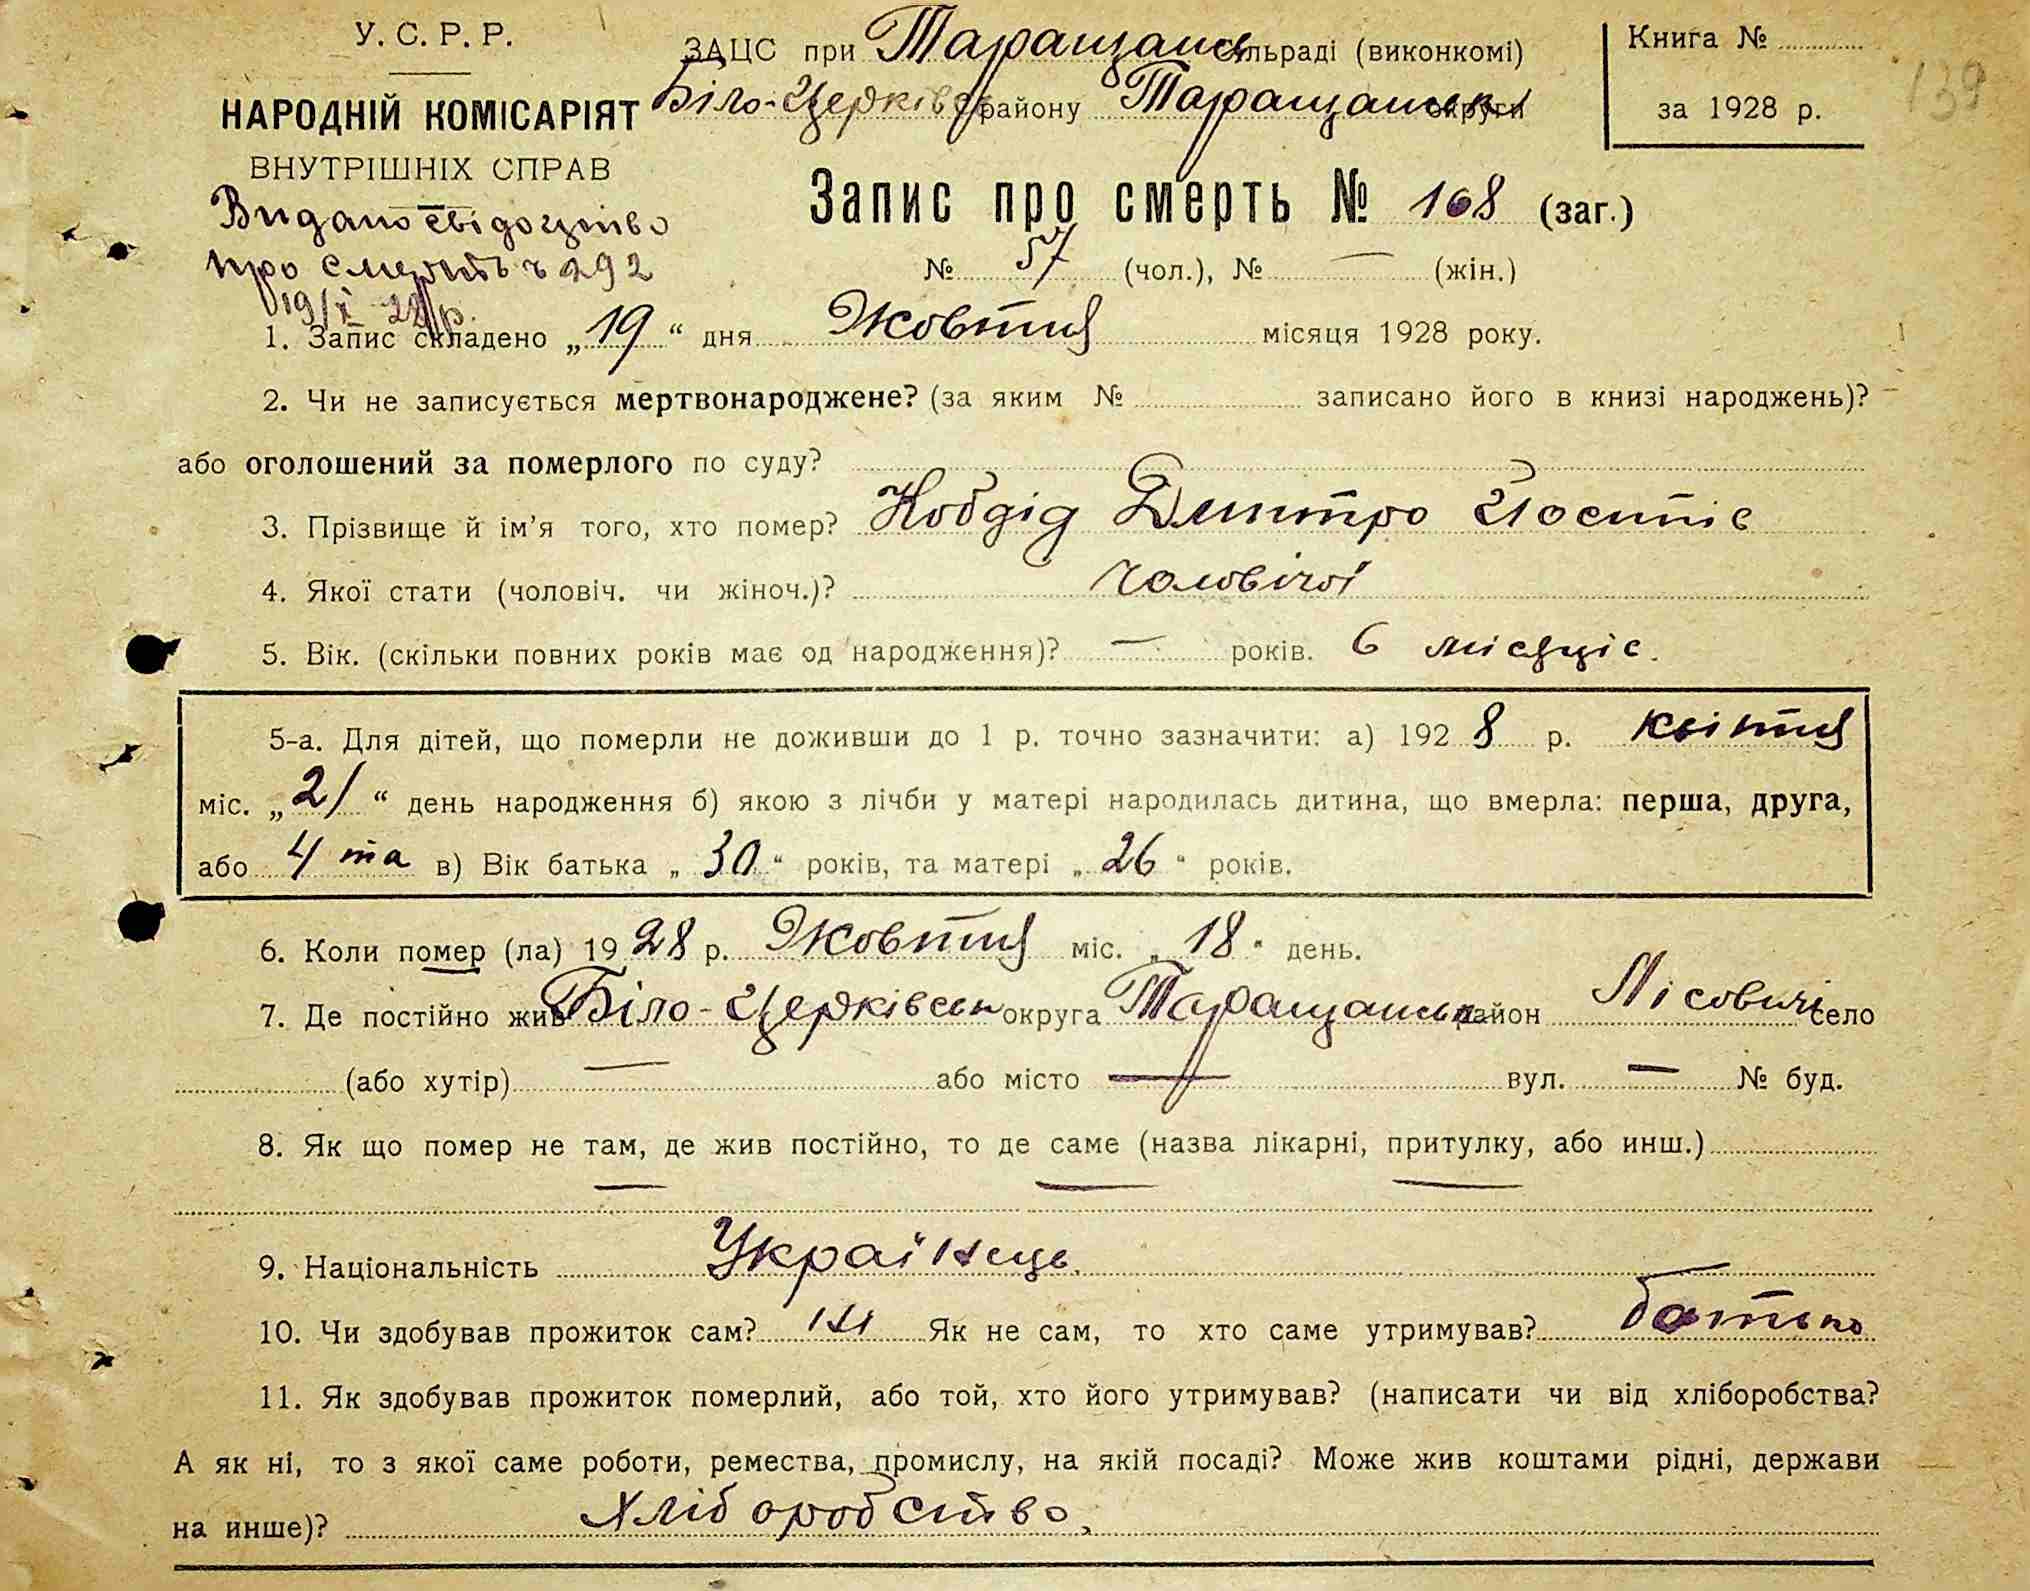 У. С. Р. Р.
НАРОДНІЙ КОМІСАРІЯТ
ВНУТРІШНІХ СПРАВ
Видано свідоцтво
про смерть ч 292
19/X 28 р.
ЗАЦС при Таращанск сільраді (виконкомі)
Біло-Церків району Таращанськ округи
Книга №
за 1928 р.
139
Запис про смерть № 168 (заг.)
№ 57 (чол.), № — (жін.)
1. Запис складено „19“ дня Жовтня місяця 1928 року.
2. Чи не записується мертвонароджене? (за яким № записано його в книзі народжень)?
або оголошений за померлого по суду?
3. Прізвище й ім'я того, хто помер? Кобдід Дмитро Йосипів
4. Якої стати (чоловіч. чи жіноч.)? чоловічої
5. Вік. (скільки повних років має од народження)? — років. 6 місяців.
5-а. Для дітей, що померли не доживши до 1 р. точно зазначити: а) 1928 р. квітня
міс. „21“ день народження б) якою з лічби у матері народилась дитина, що вмерла: перша, друга,
або 4 та в) Вік батька „30“ років, та матері „26“ років.
6. Коли помер (ла) 1928 р. Жовтня міс. „18“ день.
7. Де постійно жив Біло-Церківськ округа Таращанськ район Лісовичі село
(або хутір) — або місто — вул. — № буд.
8. Як що помер не там, де жив постійно, то де саме (назва лікарні, притулку, або инш.)
— — —
9. Національність Українець
10. Чи здобував прожиток сам? ні Як не сам, то хто саме утримував? батько
11. Як здобував прожиток померлий, або той, хто його утримував? (написати чи від хліборобства?
А як ні, то з якої саме роботи, ремества, промислу, на якій посаді? Може жив коштами рідні, держави
на инше)? Хліборобство,